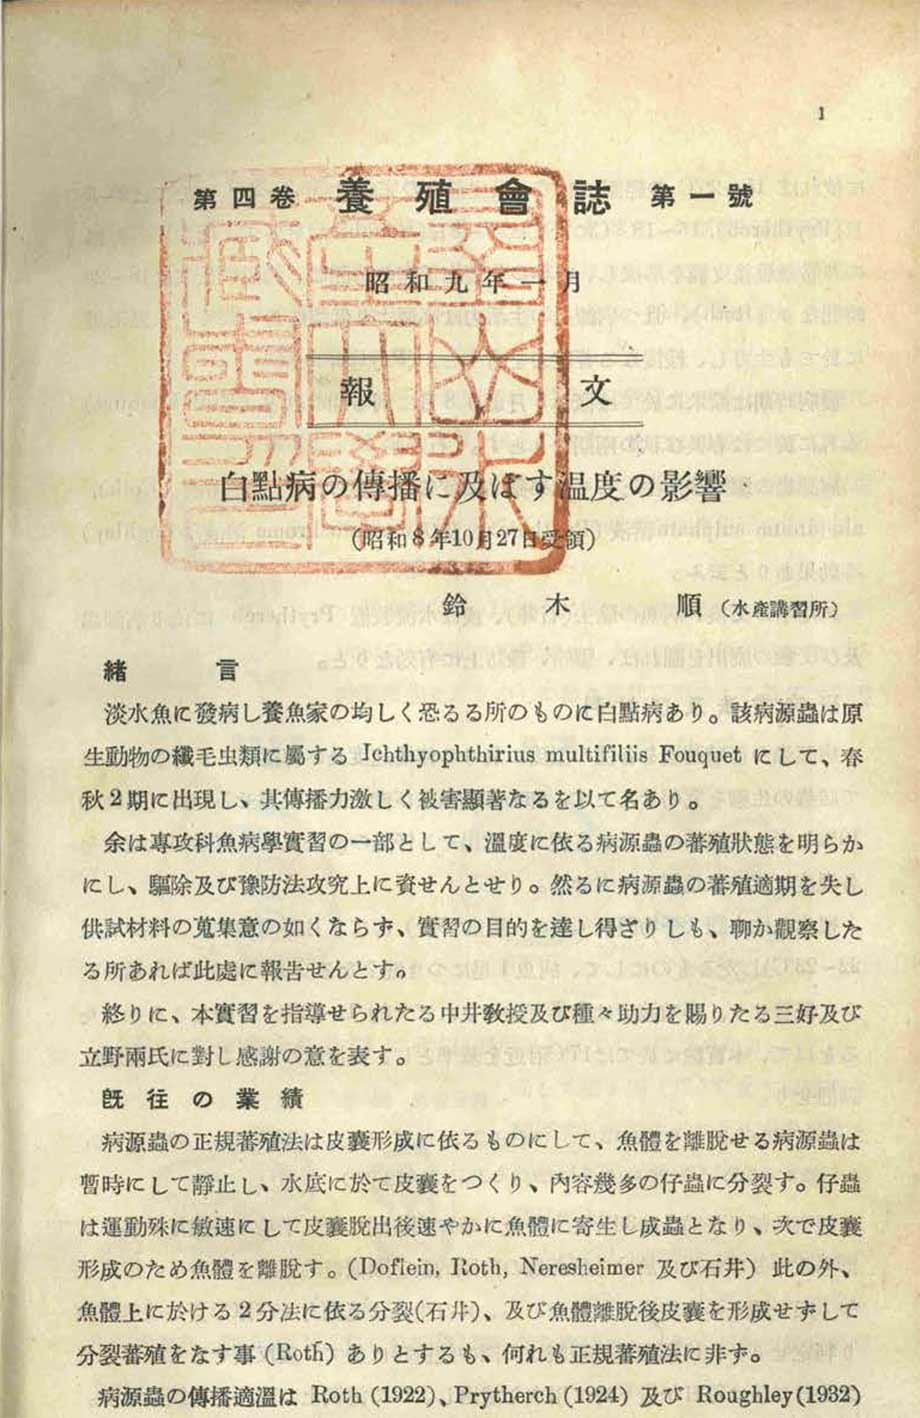 1
第四卷 養殖會誌 第一號
昭和九年一月
報文
白點病の傳播に及ぼす温度の影響
(昭和8年10月27日受領)
鈴木 順 (水產講習所)
緒言
淡水魚に發病し養魚家の均しく恐るる所のものに白點病あり。該病源蟲は原
生動物の纖毛虫類に屬する Ichthyophthirius multifiliis Fouquet にして、春
秋2期に出現し、其傳播力激しく被害顯著なるを以て名あり。
余は專攻科魚病學實習の一部として、溫度に依る病源蟲の蕃殖狀態を明らか
にし、驅除及び豫防法攻究上に資せんとせり。然るに病源蟲の蕃殖適期を失し
供試材料の蒐集意の如くならず、實習の目的を達し得ざりしも、聊か觀察した
る所あれば此處に報告せんとす。
終りに、本實習を指導せられたる中井敎授及び種々助力を賜りたる三好及び
立野兩氏に對し感謝の意を表す。
旣往の業績
病源蟲の正規蕃殖法は皮囊形成に依るものにして、魚體を離脫せる病源蟲は
暫時にして靜止し、水底に於て皮囊をつくり、內容幾多の仔蟲に分裂す。仔蟲
は運動殊に敏速にして皮囊脫出後速やかに魚體に寄生し成蟲となり、次で皮囊
形成のため魚體を離脫す。(Doflein, Roth, Neresheimer 及び石井) 此の外、
魚體上に於ける2分法に依る分裂(石井)、及び魚體離脫後皮囊を形成せずして
分裂蕃殖をなす事 (Roth) ありとするも、何れも正規蕃殖法に非ず。
病源蟲の傳播適溫は Roth (1922)、Prytherch (1924) 及び Roughley (1932)